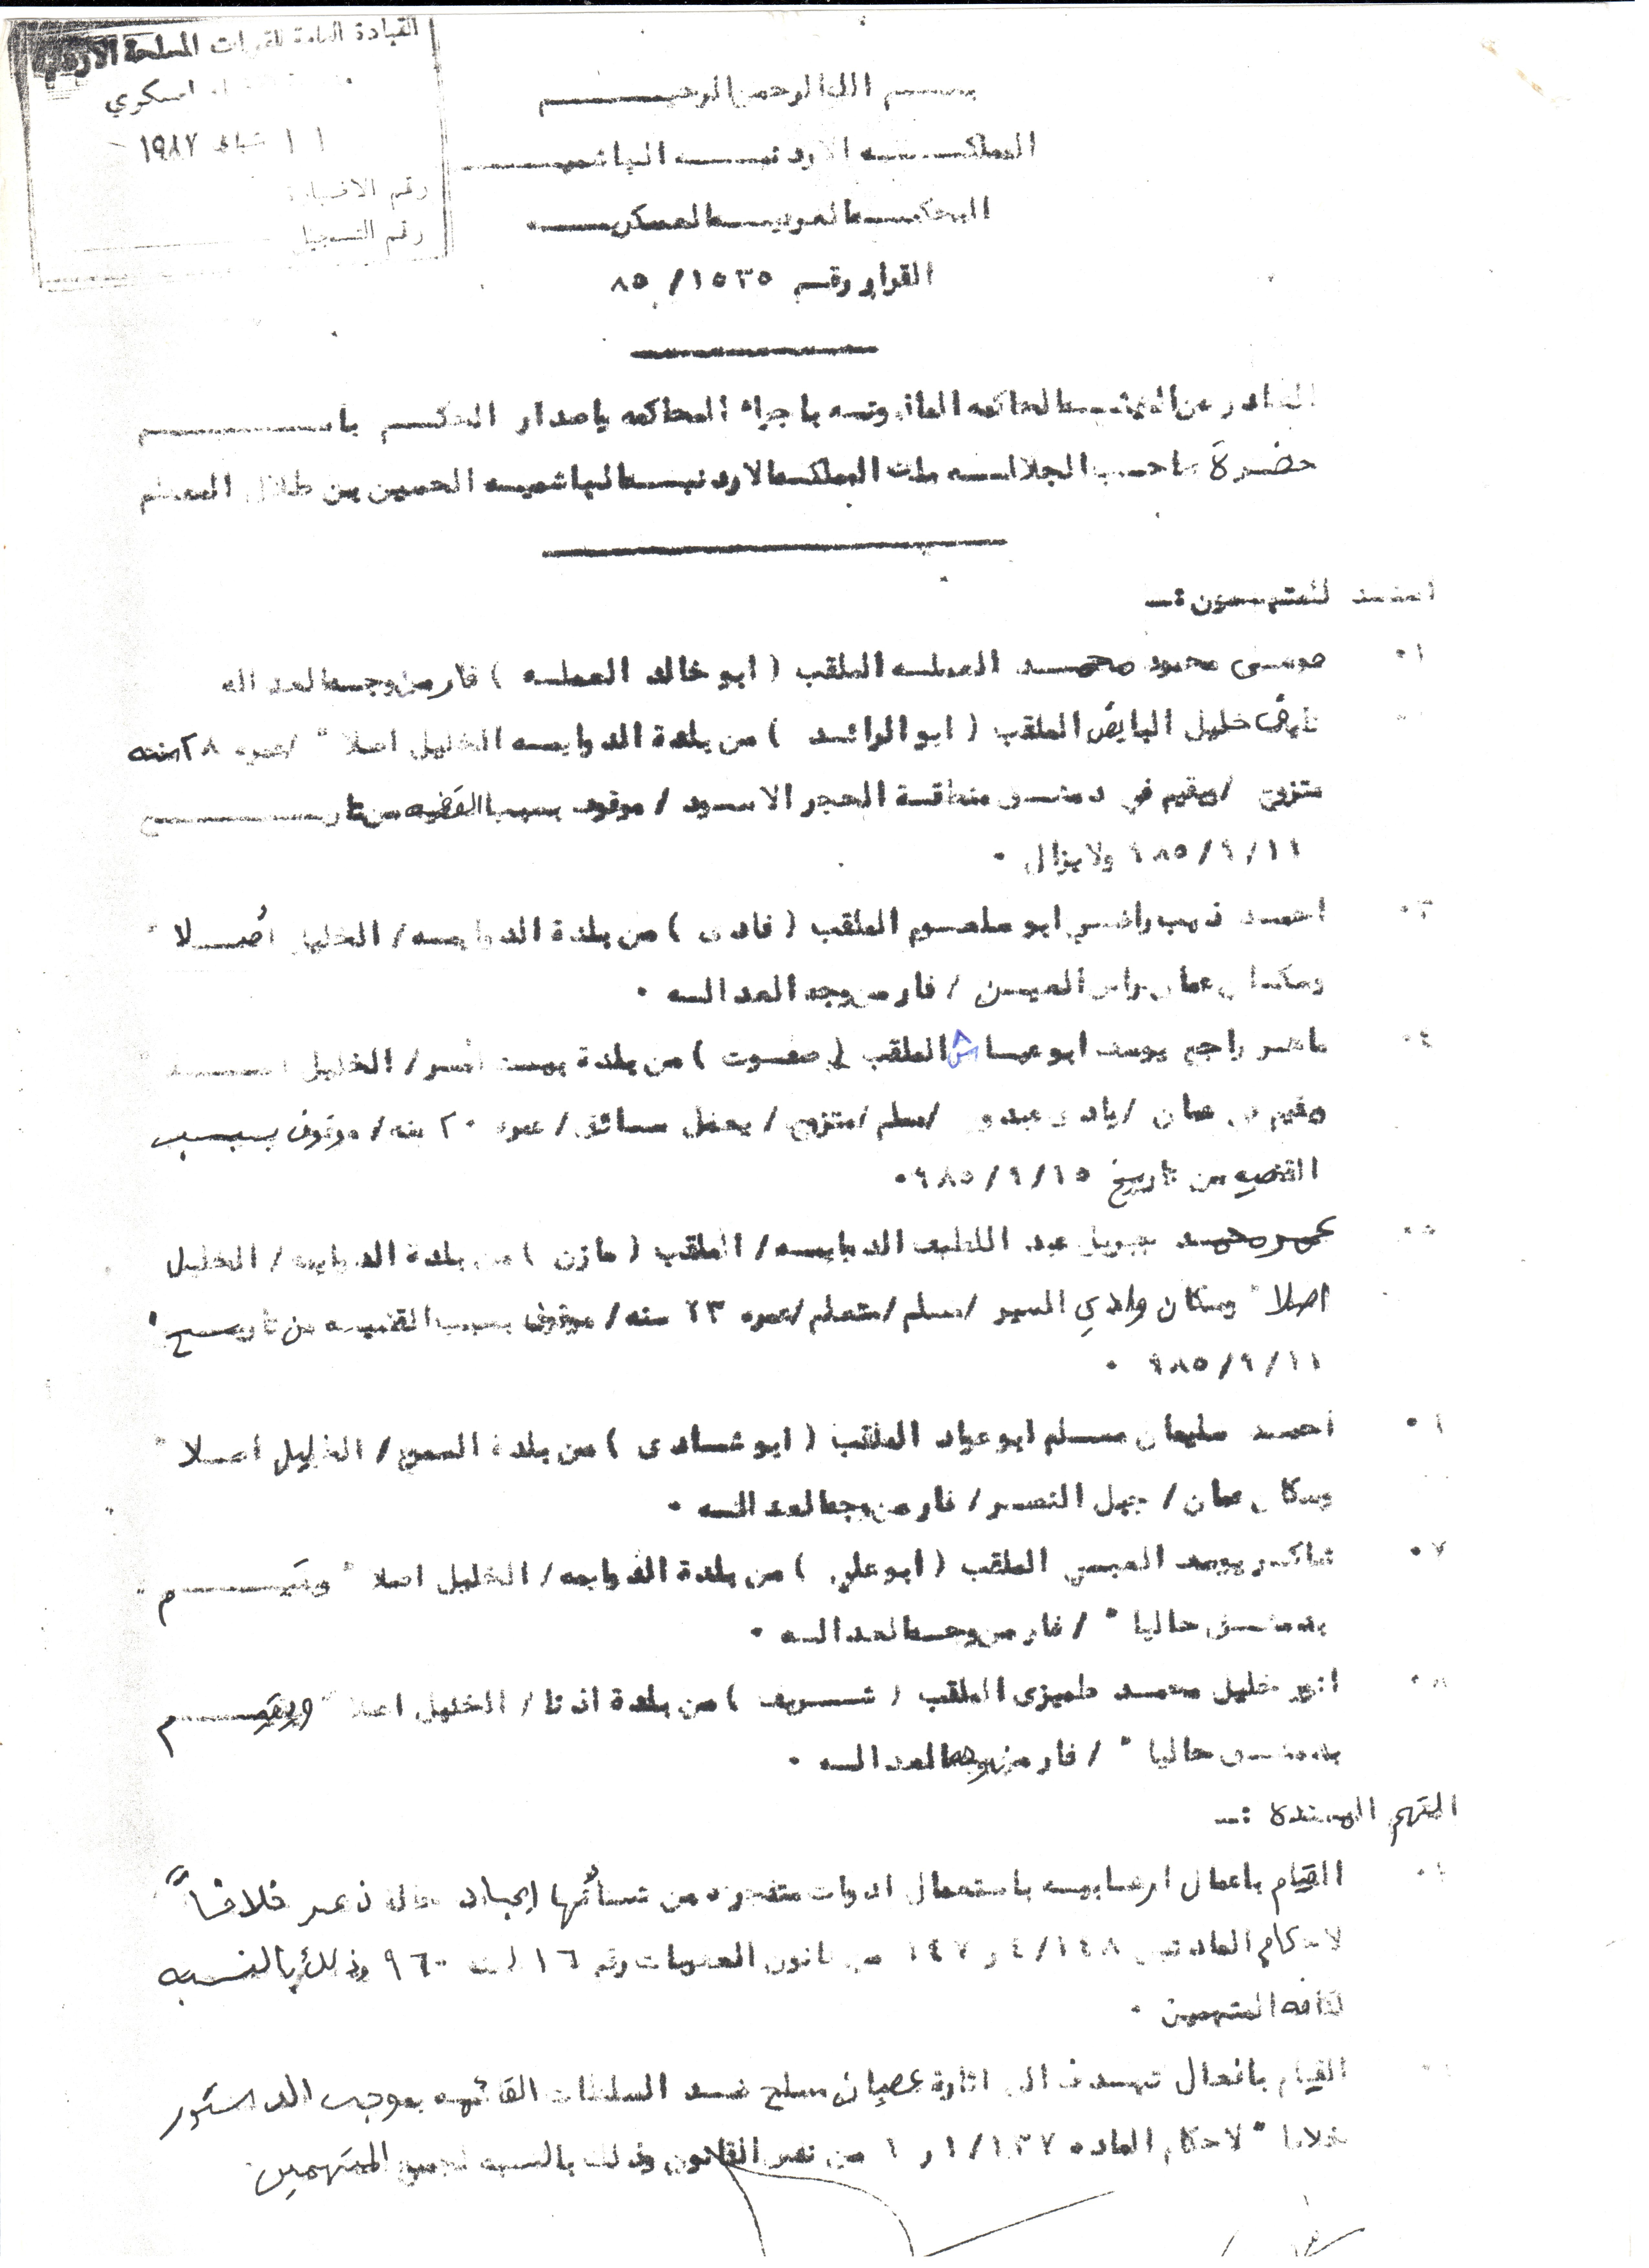 القيادة العامة للقوات المسلحة الاردنية
١١ شباط ١٩٨٧
رقم التسجيل
بسم الله الرحمن الرحيم
المملكه الاردنيه الهاشميه
المحكمه العرفيه العسكريه ٠
القرار رقم ١٥٣٥ / ٨٥
الصادر عن الهيئه الحاكمه الماذونه باجراء المحاكمه باصدار الحكم باسم
حضرة صاحب الجلاله ملك المملكه الاردنيه الهاشميه الحسين بن طلال المعظم
المتهمون :ـ
١٠ موسى محمود محمد العمله الملقب ( ابو خالد العمله ) فار من وجه العداله
خليل البايض الملقب ( ابو الرائد ) من بلدة الدوايمه الخليل اصلا" /عمره ٢٨ سنه
متزوج /ويقيم في دمشق منطقة الحجر الاسود / موقوف بسبب القضيه من تاريخ
١١/٩/٩٨٥ ولا يزال ٠
٣٠ احمد ذيب راضي ابو سلعوم الملقب ( فادى ) من بلدة الدوايمه / الخليل اصلا"
وسكان عمان راس العين / فار من وجه العداله ٠
٤٠ ماهر راجح يوسف ابو عياش الملقب ( صفوت ) من بلدة بيت امر / الخليل
ومقيم في عمان /يادى عبدون /مسلم /متزوج / يعمل سائق / عمره ٢٠ سنه / موقوف بسبب
القضيه من تاريخ ١٥/٩/٩٨٥ ٠
٥٠ محمد جبريل عبد اللطيف الدبايسه / الملقب ( مازن ) من بلدة الدوايمه / الخليل
اصلا" وسكان وادي السير /مسلم /متعلم /عمره ٢٣ سنه / موقوف بسبب القضيه من تاريخ
١١/٩/٩٨٥ ٠
٦٠ احمد سليمان مسلم ابو عواد الملقب ( ابو شادى ) من بلدة السموع / الخليل اصلا"
وسكان عمان / جبل النصر / فار من وجه العداله ٠
٧٠ شاكر يوسف العبسي الملقب ( ابو علي ) من بلدة الدوايمه / الخليل اصلا" ويقيم
بدمشق حاليا" / فار من وجه العداله ٠
٨٠ انور خليل محمد طميزى الملقب ( شريف ) من بلدة اذنا / الخليل اصلا" ويقيم
بدمشق حاليا" / فار من وجه العداله ٠
التهم المسنده :ـ
١٠ القيام باعمال ارهابيه باستعمال ادوات متفجره من شأنها ايجاد حالة ذعر خلافاً
لاحكام المادتين ٤/١٤٨ و ١٤٧ من قانون العقوبات رقم ١٦ لسنه ٩٦٠ وذلك بالنسبه
لكافه المتهمين ٠
القيام بافعال تهدف الى اثارة عصيان مسلح ضد السلطات القائمه بموجب الدستور
خلافا" لاحكام الماده ١/١٣٧ و ١ من نفس القانون وذلك بالنسبه لجميع المتهمين